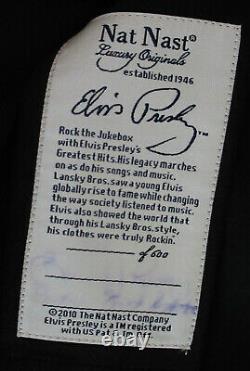 Nat Nast®
Luxury Originals
established 1946
Elvis Presley™
Rock the Jukebox
with Elvis Presley's
Greatest Hits. His legacy marches
on as do his songs and music.
Lansky Bros. saw a young Elvis
globally rise to fame while changing
the way society listened to music.
Elvis also showed the world that
through his Lansky Bros. style,
his clothes were truly Rockin'.
of 600
©2010 The Nat Nast Company
Elvis Presley is a TM registered
with US Pat & Tm Off.